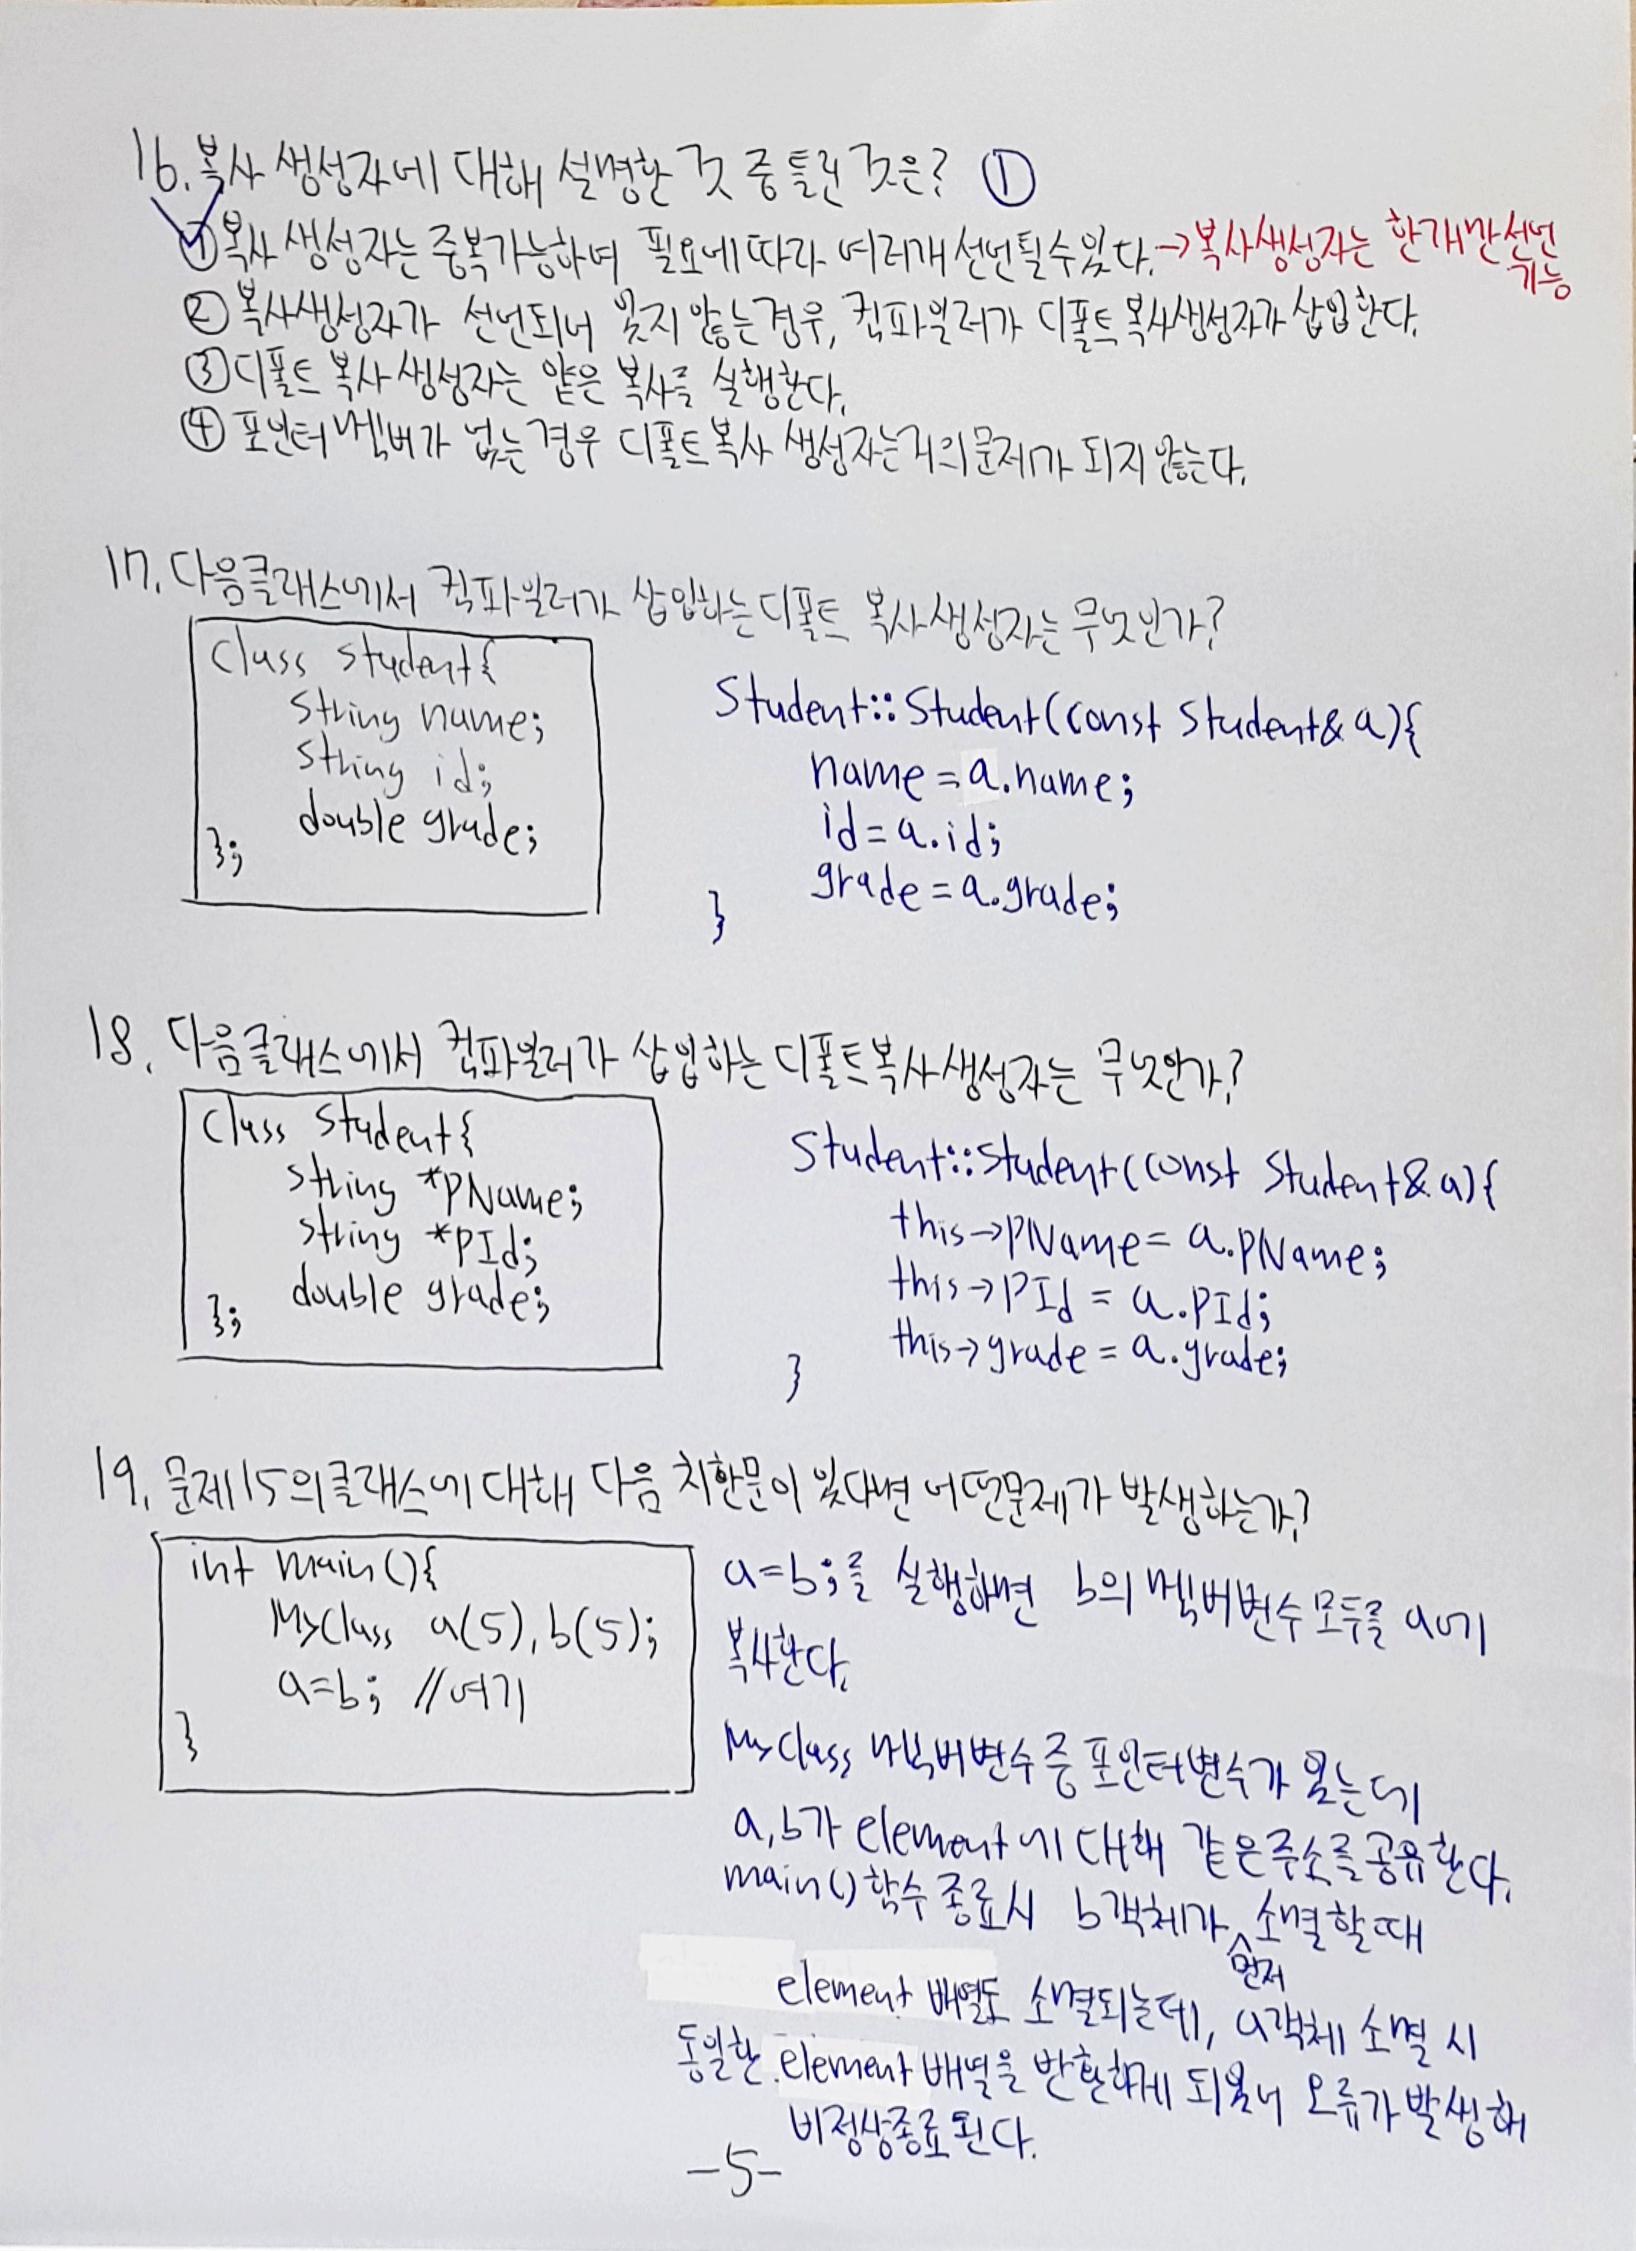 16. 복사 생성자에 대해 설명한 것 중 틀린 것은? ①
① 복사 생성자는 중복가능하며 필요에따라 여러개 선언될수있다. → 복사생성자는 한개만 선언 가능
② 복사생성자가 선언되어 있지 않는경우, 컴파일러가 디폴트 복사생성자가 삽입한다.
③ 디폴트 복사 생성자는 얕은 복사를 실행한다.
④ 포인터 멤버가 없는 경우 디폴트 복사 생성자는 거의 문제가 되지 않는다.
17. 다음클래스에서 컴파일러가 삽입하는 디폴트 복사생성자는 무엇인가?
class Student{
string name;
string id;
double grade;
};
Student::Student(const Student& a){
name = a.name;
id = a.id;
grade = a.grade;
}
18. 다음클래스에서 컴파일러가 삽입하는 디폴트복사생성자는 무엇인가?
class Student{
string *pName;
string *pId;
double grade;
};
Student::Student(const Student& a){
this→pName = a.pName;
this→pId = a.pId;
this→grade = a.grade;
}
19. 문제15의클래스에 대해 다음 치환문이 있다면 어떤문제가 발생하는가?
int main(){
MyClass a(5), b(5);
a=b; //여기
}
a=b;를 실행하면 b의 멤버변수 모두를 a에
복사한다.
MyClass 멤버변수 중 포인터변수가 있는데
a,b가 element에 대해 같은주소를 공유한다.
main() 함수 종료시 b객체가 먼저 소멸할 때
element 배열도 소멸되는데, a객체 소멸 시
동일한 element 배열을 반환하게 되있어 오류가 발생해
비정상종료 된다.
-5-